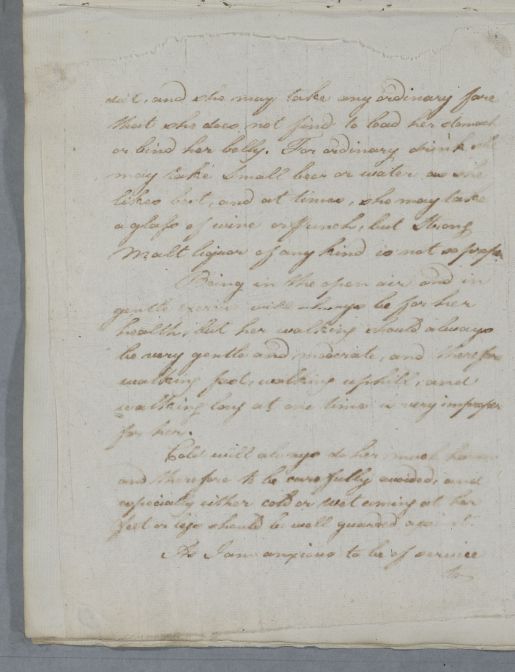 diet, and she may take any ordinary fare
that she does not find to load her stomach
or bind her belly. For ordinary drink she
may take Small beer or water as she
likes best, and at times, she may take
a glass of wine or punch, but Strong
Malt liquor of any kind is not so proper
Being in the open air and in
gentle exercise will always be for her
health, but her walking should always
be very gentle and moderate, and therefore
walking fast, walking uphill, and
walking long at one time is very improper
for her.
Cold will always do her much harm
and therefore to be carefully avoided, and
especially either cold or wet coming at her
feet or legs should be well guarded against.
As I am anxious to be of service
to